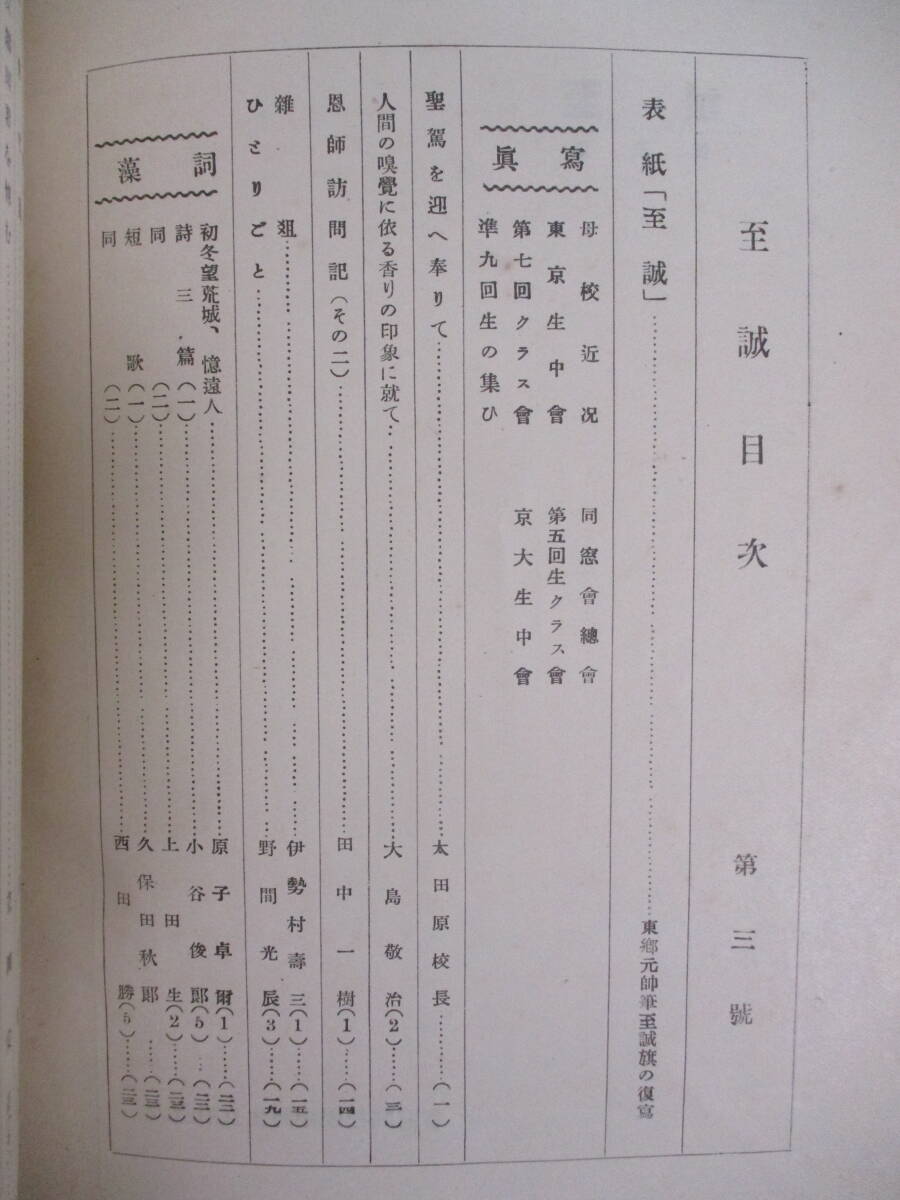 至誠目次　第三號
表紙「至誠」……東鄕元帥筆至誠旗の復寫
寫眞
母校近况　同窓會總會
東京生中會　第五回生クラス會
第七回クラス會　京大生中會
準九回生の集ひ
聖駕を迎へ奉りて……太田原校長……(一)
人間の嗅覺に依る香りの印象に就て……大島敬治(2)……(三)
恩師訪問記(その二)……田中一樹(1)……(一四)
雜爼……伊勢村壽三(1)……(一五)
ひとりごと……野間光辰(3)……(一九)
詞藻
初冬望荒城、憶遠人……原子卓爾(1)……(二二)
詩三篇(一)……小谷俊郞(5)……(二二)
同(二)……上田生(2)……(二三)
短歌(一)……久保田秋郞……(二三)
同(二)……西田勝(5)……(二三)